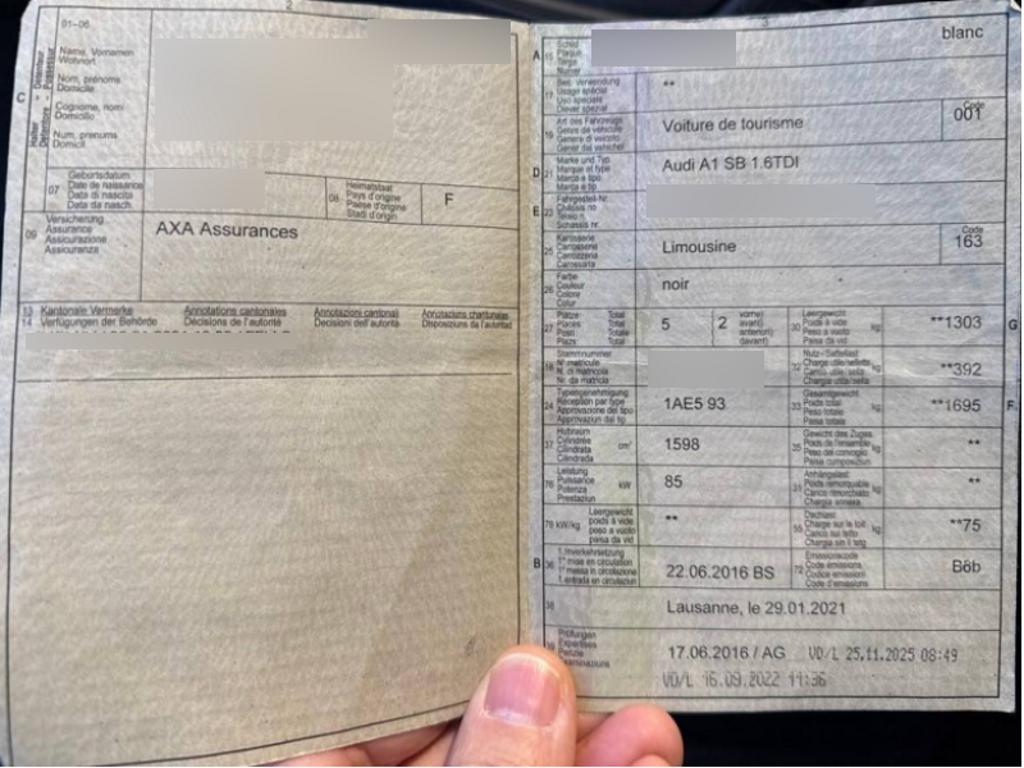 2
01-06
C
Halter - Détenteur
Detentore - Possessur
Name, Vornamen
Wohnort
Nom, prénoms
Domicile
Cognome, nomi
Domicilio
Num, prenums
Domicil
07
Geburtsdatum
Date de naissance
Data di nascita
Data da nasch.
08
Heimatstaat
Pays d'origine
Paese d'origine
Stadi d'origin
F
09
Versicherung
Assurance
Assicurazione
Assicuranza
AXA Assurances
13 Kantonale Vermerke Annotations cantonales Annotazioni cantonali Annotaziuns chantunalas
14 Verfügungen der Behörde Décisions de l'autorité Decisioni dell'autorità Disposiziuns da l'autoritad
3
A
15
Schild
Plaque
Targa
Numer
blanc
17
Bes. Verwendung
Usage spécial
Uso speciale
Diever spezial
**
19
Art des Fahrzeugs
Genre de véhicule
Genere di veicolo
Gener dal vehichel
Voiture de tourisme
Code
001
D
21
Marke und Typ
Marque et type
Marca e tipo
Marca e tip
Audi A1 SB 1.6TDI
E
23
Fahrgestell-Nr.
Châssis no
Telaio n.
Schassis nr.
25
Karosserie
Carrosserie
Carrozzeria
Carossaria
Limousine
Code
163
26
Farbe
Couleur
Colore
Colur
noir
27
Plätze Total
Places Total
Posti Totale
Plazs Total
5
2
vorne)
avant)
anteriori)
davant)
30
Leergewicht
Poids à vide
Peso a vuoto
Paisa da vid
kg
**1303
G
18
Stammnummer
N° matricule
N. di matricola
Nr. da matricla
32
Nutz-/Sattellast
Charge utile/sellette
Carico utile/sella
Chargia utila/sella
kg
**392
24
Typengenehmigung
Réception par type
Approvazione del tipo
Approvaziun dal tip
1AE5 93
33
Gesamtgewicht
Poids total
Peso totale
Paisa totala
kg
**1695
F
37
Hubraum
Cylindrée
Cilindrata
Cilindrada
cm³
1598
35
Gewicht des Zuges
Poids de l'ensemble
Peso del convoglio
Paisa cumposiziun
kg
**
76
Leistung
Puissance
Potenza
Prestaziun
kW
85
31
Anhängelast
Poids remorquable
Carico rimorchiato
Chargia annexa
kg
**
78 kW/kg
Leergewicht
poids à vide
peso a vuoto
paisa da vid
**
55
Dachlast
Charge sur le toit
Carico sul tetto
Chargia sin il tetg
kg
**75
B
36
1. Inverkehrsetzung
1re mise en circulation
1a messa in circolazione
1. entrada en circulaziun
22.06.2016 BS
72
Emissionscode
Code émissions
Codice emissioni
Code d'emissiuns
B6b
38
Lausanne, le 29.01.2021
39
Prüfungen
Expertises
Perizie
Examinaziuns
17.06.2016 / AG VD/L 25.11.2025 08:49
VD/L 16.09.2022 11:36